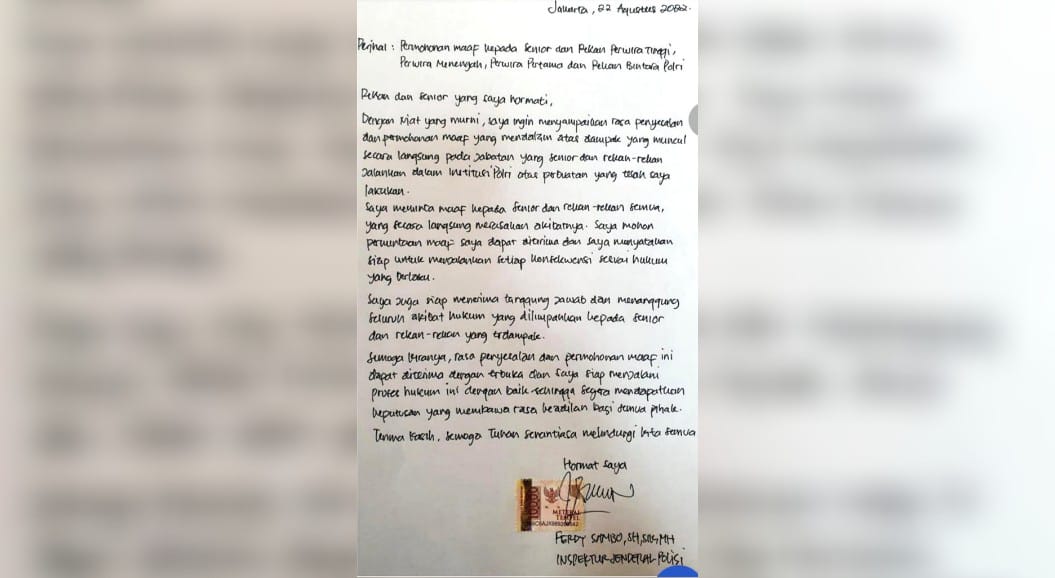 Jakarta, 22 Agustus 2022.
Perihal : Permohonan maaf kepada Senior dan Rekan Perwira Tinggi,
Perwira Menengah, Perwira Pertama dan Rekan Bintara Polri
Rekan dan senior yang saya hormati,
Dengan niat yang murni, saya ingin menyampaikan rasa penyesalan
dan permohonan maaf yang mendalam atas dampak yang muncul
secara langsung pada jabatan yang senior dan rekan-rekan
jalankan dalam Institusi Polri atas perbuatan yang telah saya
lakukan.
Saya meminta maaf kepada senior dan rekan-rekan semua,
yang secara langsung merasakan akibatnya. Saya mohon
permintaan maaf saya dapat diterima dan saya menyatakan
siap untuk menjalankan setiap konsekwensi sesuai hukum
yang berlaku.
Saya juga siap menerima tanggung jawab dan menanggung
seluruh akibat hukum yang dilimpahkan kepada senior
dan rekan-rekan yang terdampak.
Semoga kiranya, rasa penyesalan dan permohonan maaf ini
dapat diterima dengan terbuka dan saya siap menjalani
proses hukum ini dengan baik sehingga segera mendapatkan
keputusan yang membawa rasa keadilan bagi semua pihak.
Terima kasih, semoga Tuhan senantiasa melindungi kita semua
Hormat saya
10000
METERAI
TEMPEL
FERDY SAMBO, SH, SIK, MH
INSPEKTUR JENDERAL POLISI